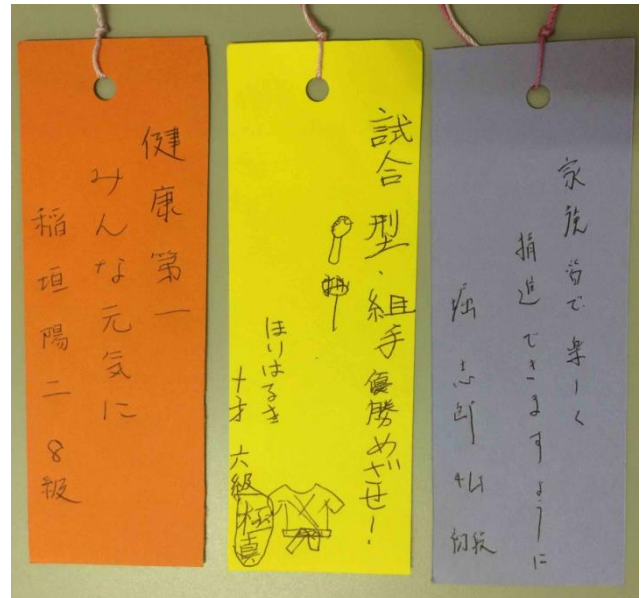 健康第一
みんな元気に
稲垣陽二 8級
試合 型、組手 優勝めざせ!
ほりはるき
十才 六級
極真
家族皆で楽しく
精進できますように
堀 初段